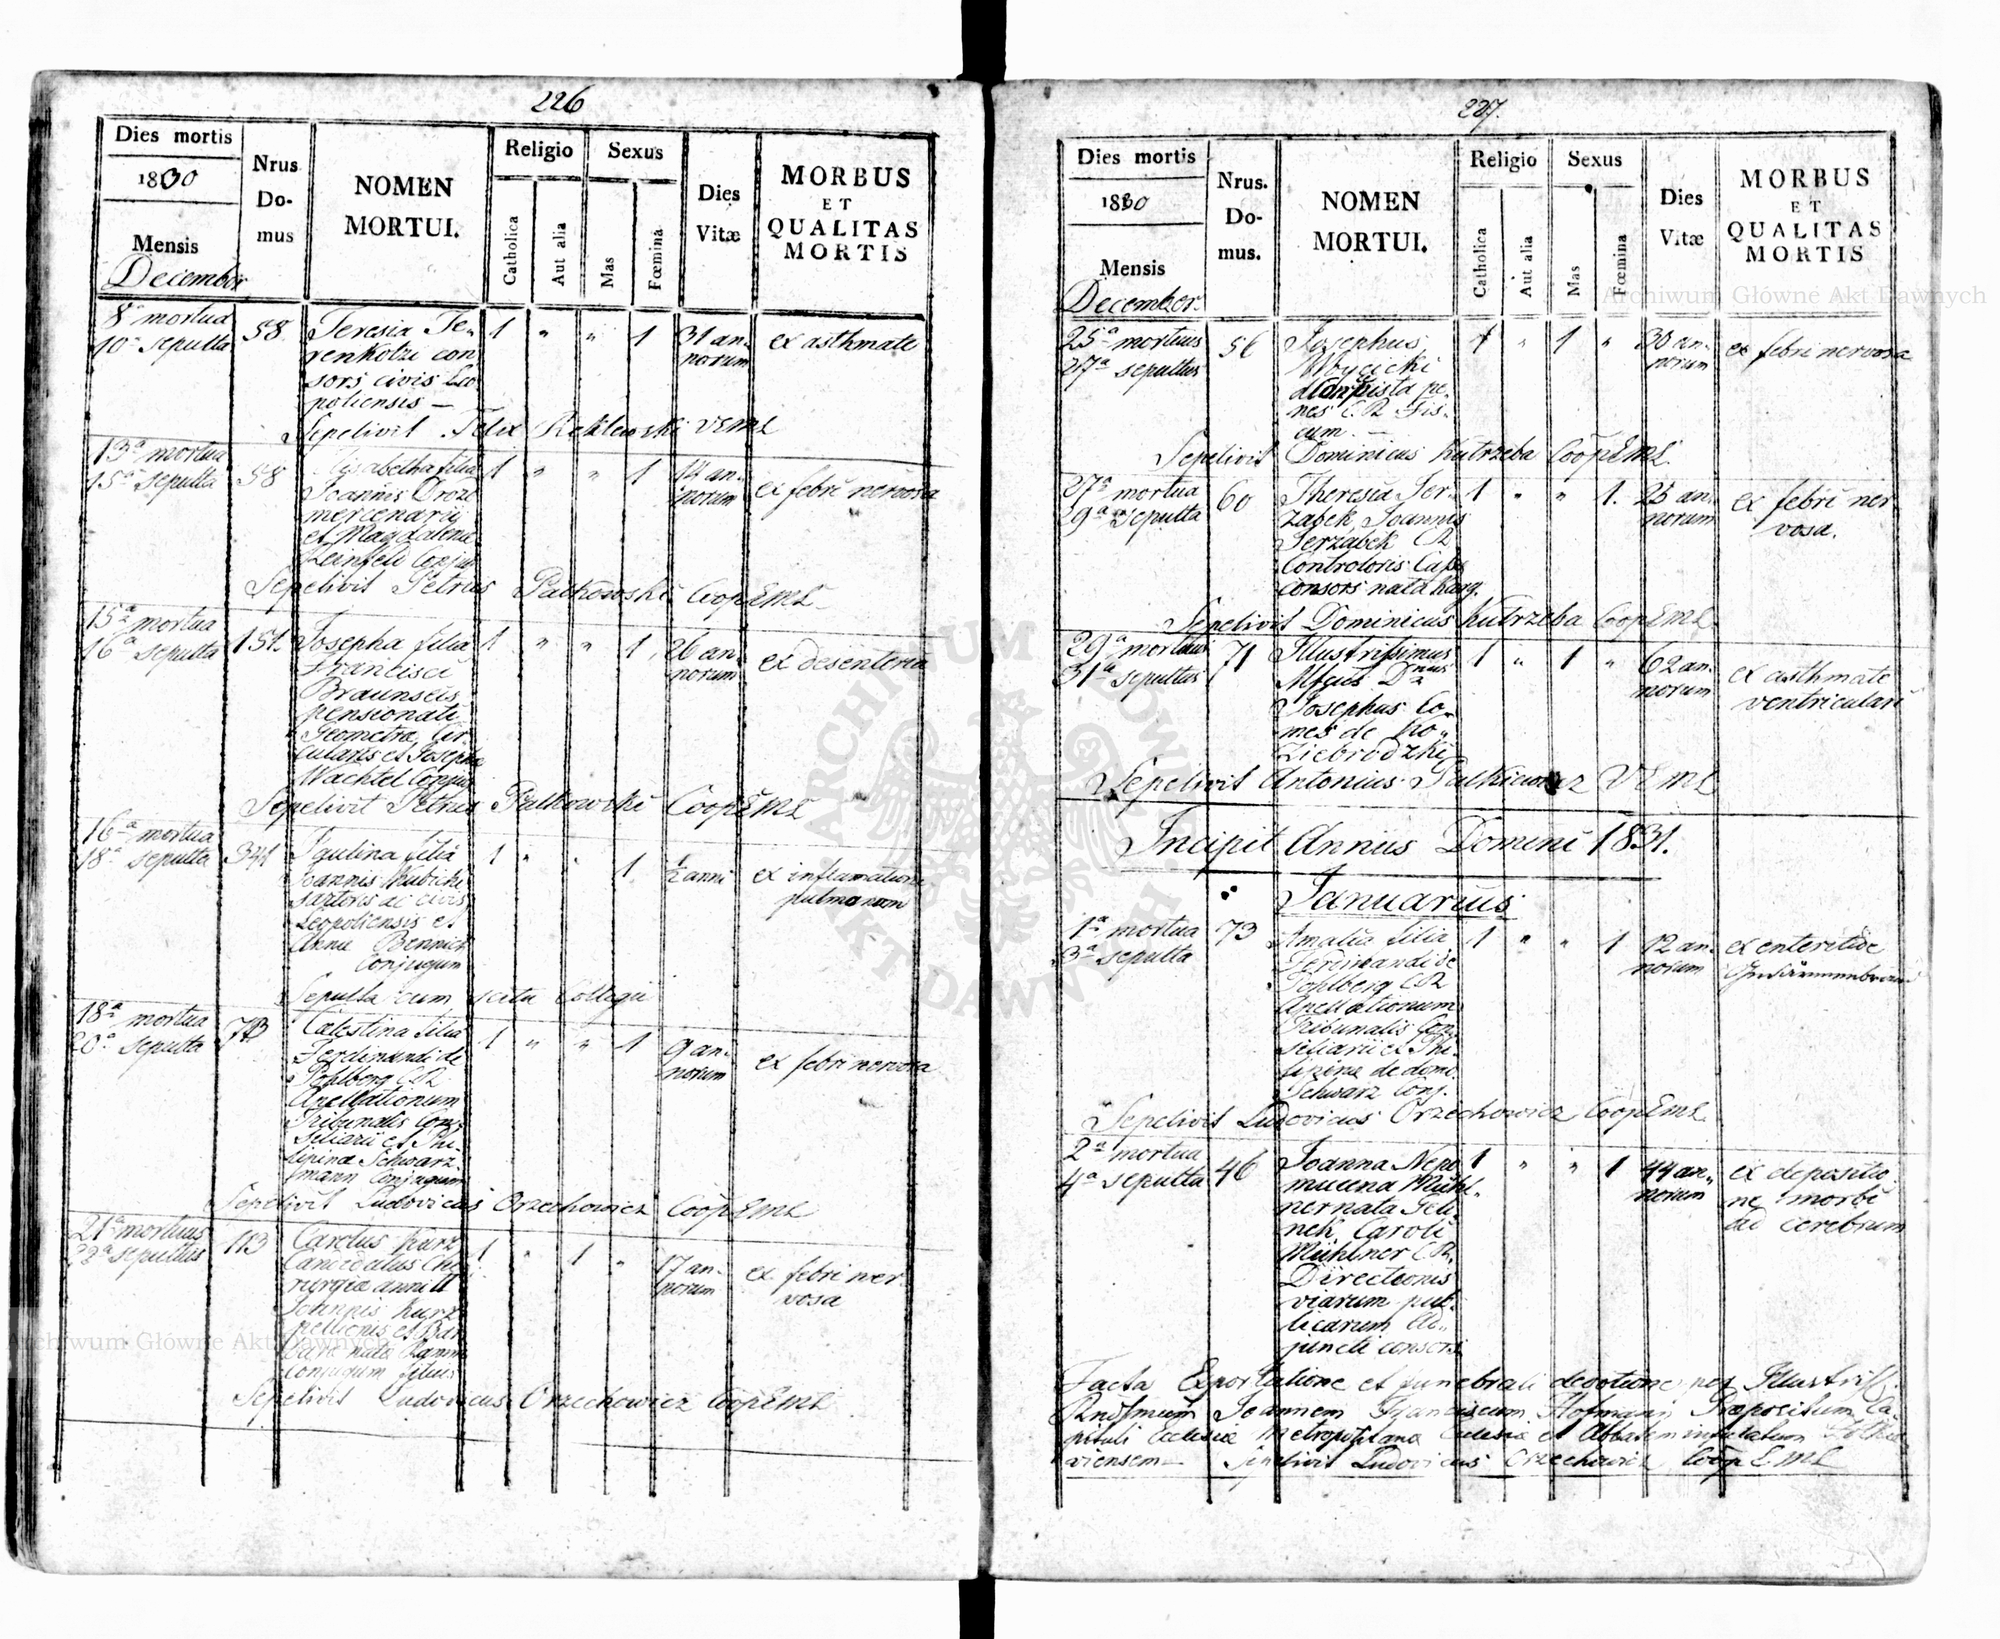 226
Dies mortis
1830
Mensis
December
Nrus
Do-
mus
NOMEN
MORTUI.
Religio
Catholica
Aut alia
Sexus
Mas
Fœmina
Dies
Vitæ
MORBUS
ET
QUALITAS
MORTIS
8a mortua
10a sepulta
58
Teresia Te-
renkotzi con
sors civis Leo
poliensis —
1 " " 1
31 an-
norum
ex asthmate
Sepelivit Felix Reklewski VEML
13a mortua
15a sepulta
58
Elisabetha filia
Joannis Drozd
mercenarii
et Magdalena
Leinfeld Conjug
1 " " 1
14 an-
norum
ex febri nervosa
Sepelivit Petrus Patkowski CoopEML
15a mortua
16a sepulta
151.
Josepha filia
Francisci
Braunseis
pensionati
Geometra Cir
cularis et Josepha
Wachtel Conjug
1 " " 1
26 an-
norum
ex desenteria
Sepelivit Petrus Patkowski CoopEML
16a mortua
18a sepulta
344
Paulina filia
Joannis Kubicki
sartoris ac civis
Leopoliensis et
Anna Bennich
Conjugum
1 " " 1
1/2 anni
ex inflamatione
pulmonum
Sepulta cum scitu Collegii
18a mortua
20a sepulta
73
Cælestina filia
Ferdinandi de
Pohlberg CR
Apellationum
Tribunalis Con-
siliarii et Phi-
lipina Schwarz
mann Conjugum
1 " " 1
9 an-
norum
ex febri nervosa
Sepelivit Ludovicus Orzechowicz CoopEML
21a mortuus
23a sepultus
113
Carolus Kurz
Candidatus Chi
rurgiæ anni II
Joannis Kurz
pellionis et Bar
bara nata Ramm
conjugum filius
1 " 1 "
17 an-
norum
ex febri ner
vosa
Sepelivit Ludovicus Orzechowicz CoopEML
227.
Dies mortis
1830
Mensis
December.
Nrus.
Do-
mus.
NOMEN
MORTUI.
Religio
Catholica
Aut alia
Sexus
Mas
Fœmina
Dies
Vitæ
MORBUS
ET
QUALITAS
MORTIS
25a mortuus
27a sepultus
56
Josephus
Woycicki
pe-
nes CR Fis-
cum. —
1 " 1 "
30 an-
norum
ex febri nervosa
Sepelivit Dominicus Kutrzeba CoopEML
27a mortua
29a sepulta
60
Theresia Jer-
zabek, Joannis
Jerzabek CR
Controloris Cassæ
consors nata Karg.
1 " " 1.
25 an-
norum
ex febri ner
vosa.
Sepelivit Dominicus Kutrzeba CoopEML
29a mortuus
31a sepultus
71
Illustrissimus
Mfcus Dnus
Josephus Co-
mes de Ko-
ziebrodzki
1 " 1 "
62 an-
norum
ex asthmate
ventriculari
Sepelivit Antonius Patkiewicz VEML
Incipit Annus Domini 1831.
Januarius
1a mortua
3a sepulta
73
Amalia filia
Ferdinandi de
Pohlberg CR
Apellationum
Tribunalis Con-
siliarii et Phi-
lipina de domo
Schwarz Conj.
1 " " 1
12 an-
norum
ex enteritide
Sepelivit Ludovicus Orzechowicz CoopEML
2a mortua
4a sepulta
46
Joanna Nepo
mucena Mühl-
ner nata Jeli-
nek, Caroli
Mühlner CR
Directionis
viarum pub-
licarum Ad-
juncti consors
1 " " 1
44 an-
norum
ex depositio-
ne morbi
ad cerebrum
Facta Exportatione et funebrali devotione per Illustriss:
Rndssmum Joannem Franciscum Hofmann Præpositum Ca-
pituli Ecclesiæ Metropolitanæ et Abbatem infulatum
viensem — Sepelivit Ludovicus Orzechowicz CoopEML
Archiwum Główne Akt Dawnych
Archiwum Główne Akt Dawnych
ARCHIWUM GŁÓWNE AKT DAWNYCH